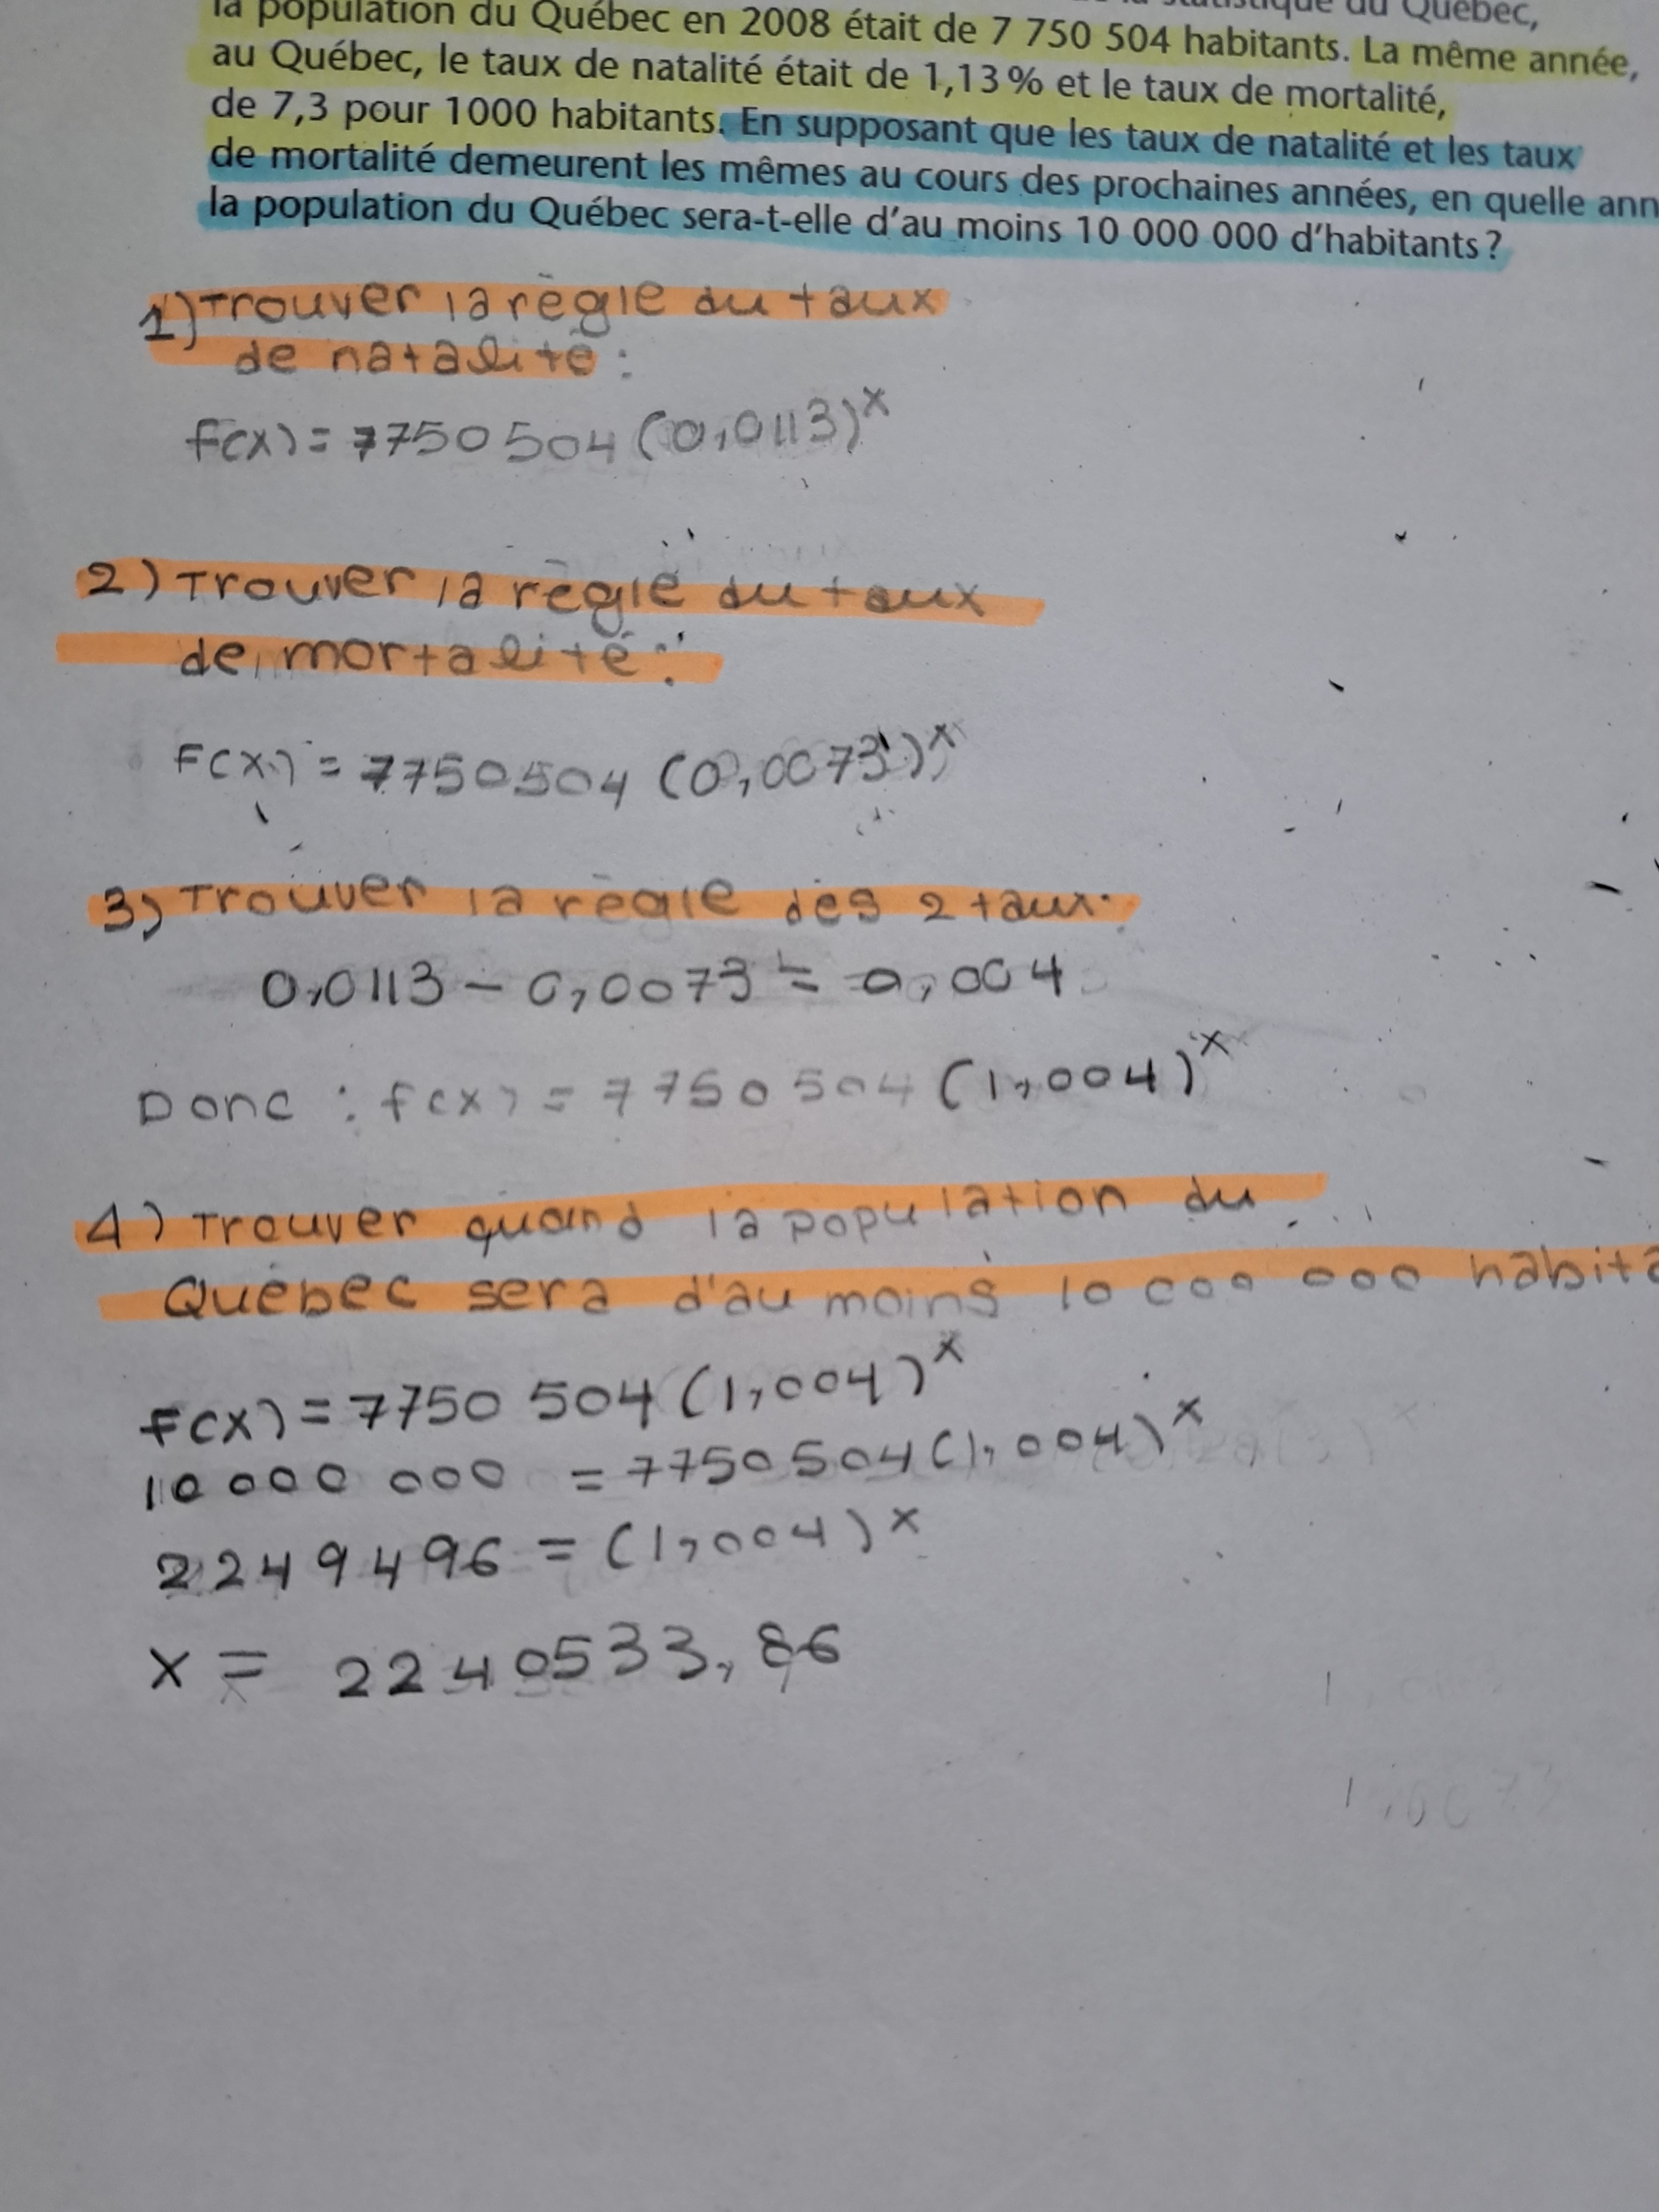 la population du Québec en 2008 était de 7 750 504 habitants. La même année,
au Québec, le taux de natalité était de 1,13 % et le taux de mortalité,
de 7,3 pour 1000 habitants. En supposant que les taux de natalité et les taux
de mortalité demeurent les mêmes au cours des prochaines années, en quelle ann
la population du Québec sera-t-elle d'au moins 10 000 000 d'habitants ?
1) Trouver la règle du taux
de natalité :
f(x) = 7750 504 (0,0113)^x
2) Trouver la règle du taux
de mortalité :
F(x) = 7750504 (0,0073)^x
3) Trouver la règle des 2 taux.
0,0113 - 0,0073 = 0,004
Donc : f(x) = 7750 504 (1,004)^x
4) Trouver quand la population du
Québec sera d'au moins 10 000 000 habita
f(x) = 7750 504 (1,004)^x
10 000 000 = 7750 504 (1,004)^x
2249496 = (1,004)^x
x = 2240533,86
1,0073